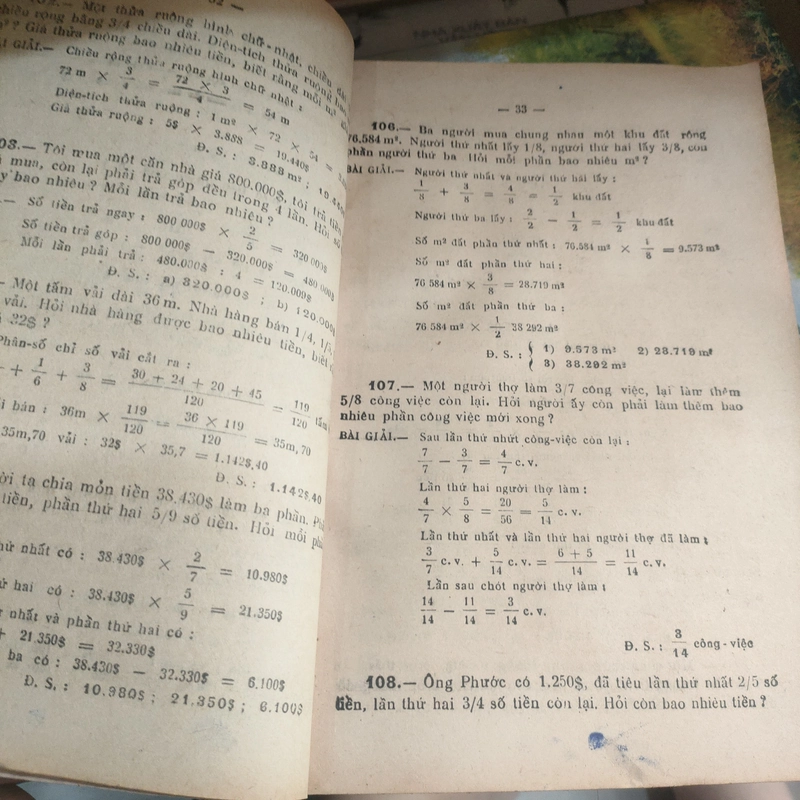 — 32 —
Một thửa ruộng hình chữ-nhật, chiều dài
chiều rộng bằng 3/4 chiều dài. Diện-tích thửa ruộng bao
m² ? Giá thửa ruộng bao nhiêu tiền, biết rằng mỗi m²
GIẢI.— Chiều rộng thửa ruộng hình chữ nhật :
72 m × 3/4 = 72 × 3/4 = 54 m
Diện-tích thửa ruộng : 1 m² × 72 × 54 =
Giá thửa ruộng : 5$ × 3.888 = 19.440$
Đ. S. : 3.888 m² ; 19.440
03.— Tôi mua một căn nhà giá 800.000$, tôi trả tiền
mua, còn lại phải trả góp đều trong 4 lần. Hỏi số
bao nhiêu ? Mỗi lần trả bao nhiêu ?
.— Số tiền trả ngay : 800 000$ × 2/5 = 320 000$
Số tiền trả góp : 800 000$ — 320.000$ = 480 000$
Mỗi lần phải trả : 480.000$ : 4 = 120.000$
Đ. S. : a) 320.000$ ; b) 120.000$
— Một tấm vải dài 36m. Nhà hàng bán 1/4, 1/5,
vải. Hỏi nhà hàng được bao nhiêu tiền, biết
32$ ?
Phân-số chỉ số vải cắt ra :
+ 1/6 + 3/8 = 30 + 24 + 20 + 45/120 = 119/120 tấm
bán : 36m × 119/120 = 36 × 119/120 = 35m,70
35m,70 vải : 32$ × 35,7 = 1.142$,40
Đ. S. : 1.142$,40
ta chia món tiền 38.430$ làm ba phần.
tiền, phần thứ hai 5/9 số tiền. Hỏi mỗi
nhất có : 38.430$ × 2/7 = 10.980$
hai có : 38.430$ × 5/9 = 21.350$
nhất và phần thứ hai có :
+ 21.350$ = 32.330$
ba có : 38.430$ — 32.330$ = 6.100$
Đ. S. : 10.980$ ; 21.350$ ; 6.100$
— 33 —
106.— Ba người mua chung nhau một khu đất rộng
76.584 m². Người thứ nhất lấy 1/8, người thứ hai lấy 3/8, còn
phần người thứ ba Hỏi mỗi phần bao nhiêu m² ?
BÀI GIẢI.— Người thứ nhất và người thứ hai lấy :
1/8 + 3/8 = 4/8 = 1/2 khu đất
Người thứ ba lấy : 2/2 — 1/2 = 1/2 khu đất
Số m² đất phần thứ nhất : 76.584 m² × 1/8 = 9.573 m²
Số m² đất phần thứ hai :
76 584 m² × 3/8 = 28.719 m²
Số m² đất phần thứ ba :
76 584 m² × 1/2 38 292 m²
Đ. S. : { 1) 9.573 m² 2) 28.719 m²
3) 38.292 m²
107.— Một người thợ làm 3/7 công việc, lại làm thêm
5/8 công việc còn lại. Hỏi người ấy còn phải làm thêm bao
nhiêu phần công việc mới xong ?
BÀI GIẢI.— Sau lần thứ nhứt công-việc còn lại :
7/7 — 3/7 = 4/7 c. v.
Lần thứ hai người thợ làm :
4/7 × 5/8 = 20/56 = 5/14 c. v.
Lần thứ nhất và lần thứ hai người thợ đã làm :
3/7 c. v. + 5/14 c. v. = 6 + 5/14 = 11/14 c. v.
Lần sau chót người thợ làm :
14/14 — 11/14 = 3/14 c. v.
Đ. S. : 3/14 công-việc
108.— Ông Phước có 1.250$, đã tiêu lần thứ nhất 2/5 số
tiền, lần thứ hai 3/4 số tiền còn lại. Hỏi còn bao nhiêu tiền ?